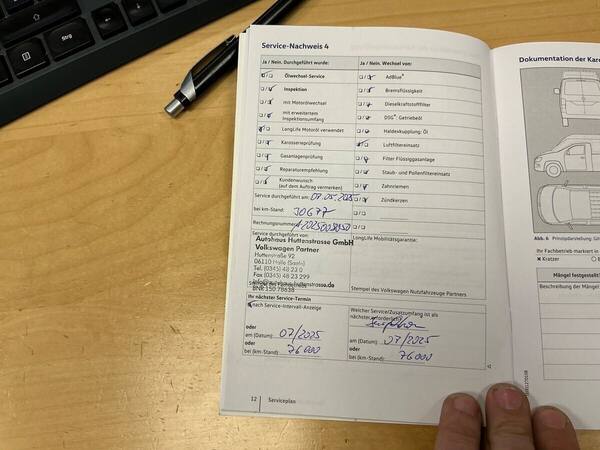 Strg
Service-Nachweis 4
Ja / Nein. Durchgeführt wurde:
Ölwechsel-Service
Inspektion
mit Motorölwechsel
mit erweitertem
Inspektionsumfang
LongLife Motoröl verwendet
Karosserieprüfung
Gasanlagenprüfung
Reparaturempfehlung
Kundenwunsch
(auf dem Auftrag vermerken)
Ja / Nein. Wechsel von:
AdBlue®
Bremsflüssigkeit
Dieselkraftstofffilter
DSG®: Getriebeöl
Haldexkupplung: Öl
Luftfiltereinsatz
Filter Flüssiggasanlage
Staub- und Pollenfiltereinsatz
Zahnriemen
Zündkerzen
Service durchgeführt am: 07.05.2025
bei km-Stand: 30677
Rechnungsnummer:
Service durchgeführt von:
Autohaus Huttenstrasse GmbH
Volkswagen Partner
Huttenstraße 92
06110 Halle (Saale)
Tel. (0345) 48 23 0
Fax (0345) 48 23 299
BNR 150 78638
LongLife Mobilitätsgarantie:
Stempel des Volkswagen Nutzfahrzeuge Partners
Ihr nächster Service-Termin
nach Service-Intervall-Anzeige
oder
am (Datum): 07/2025
oder
bei (km-Stand): 76000
Welcher Service/Zusatzumfang ist als
nächster erforderlich?
am (Datum): 07/2025
oder
bei (km-Stand): 76000
12 Serviceplan
Dokumentation der Karo
Abb. 6 Prinzipdarstellung:
Ihr Fachbetrieb markiert in
Kratzer
Mängel festgestellt?
Beschreibung der Mängel